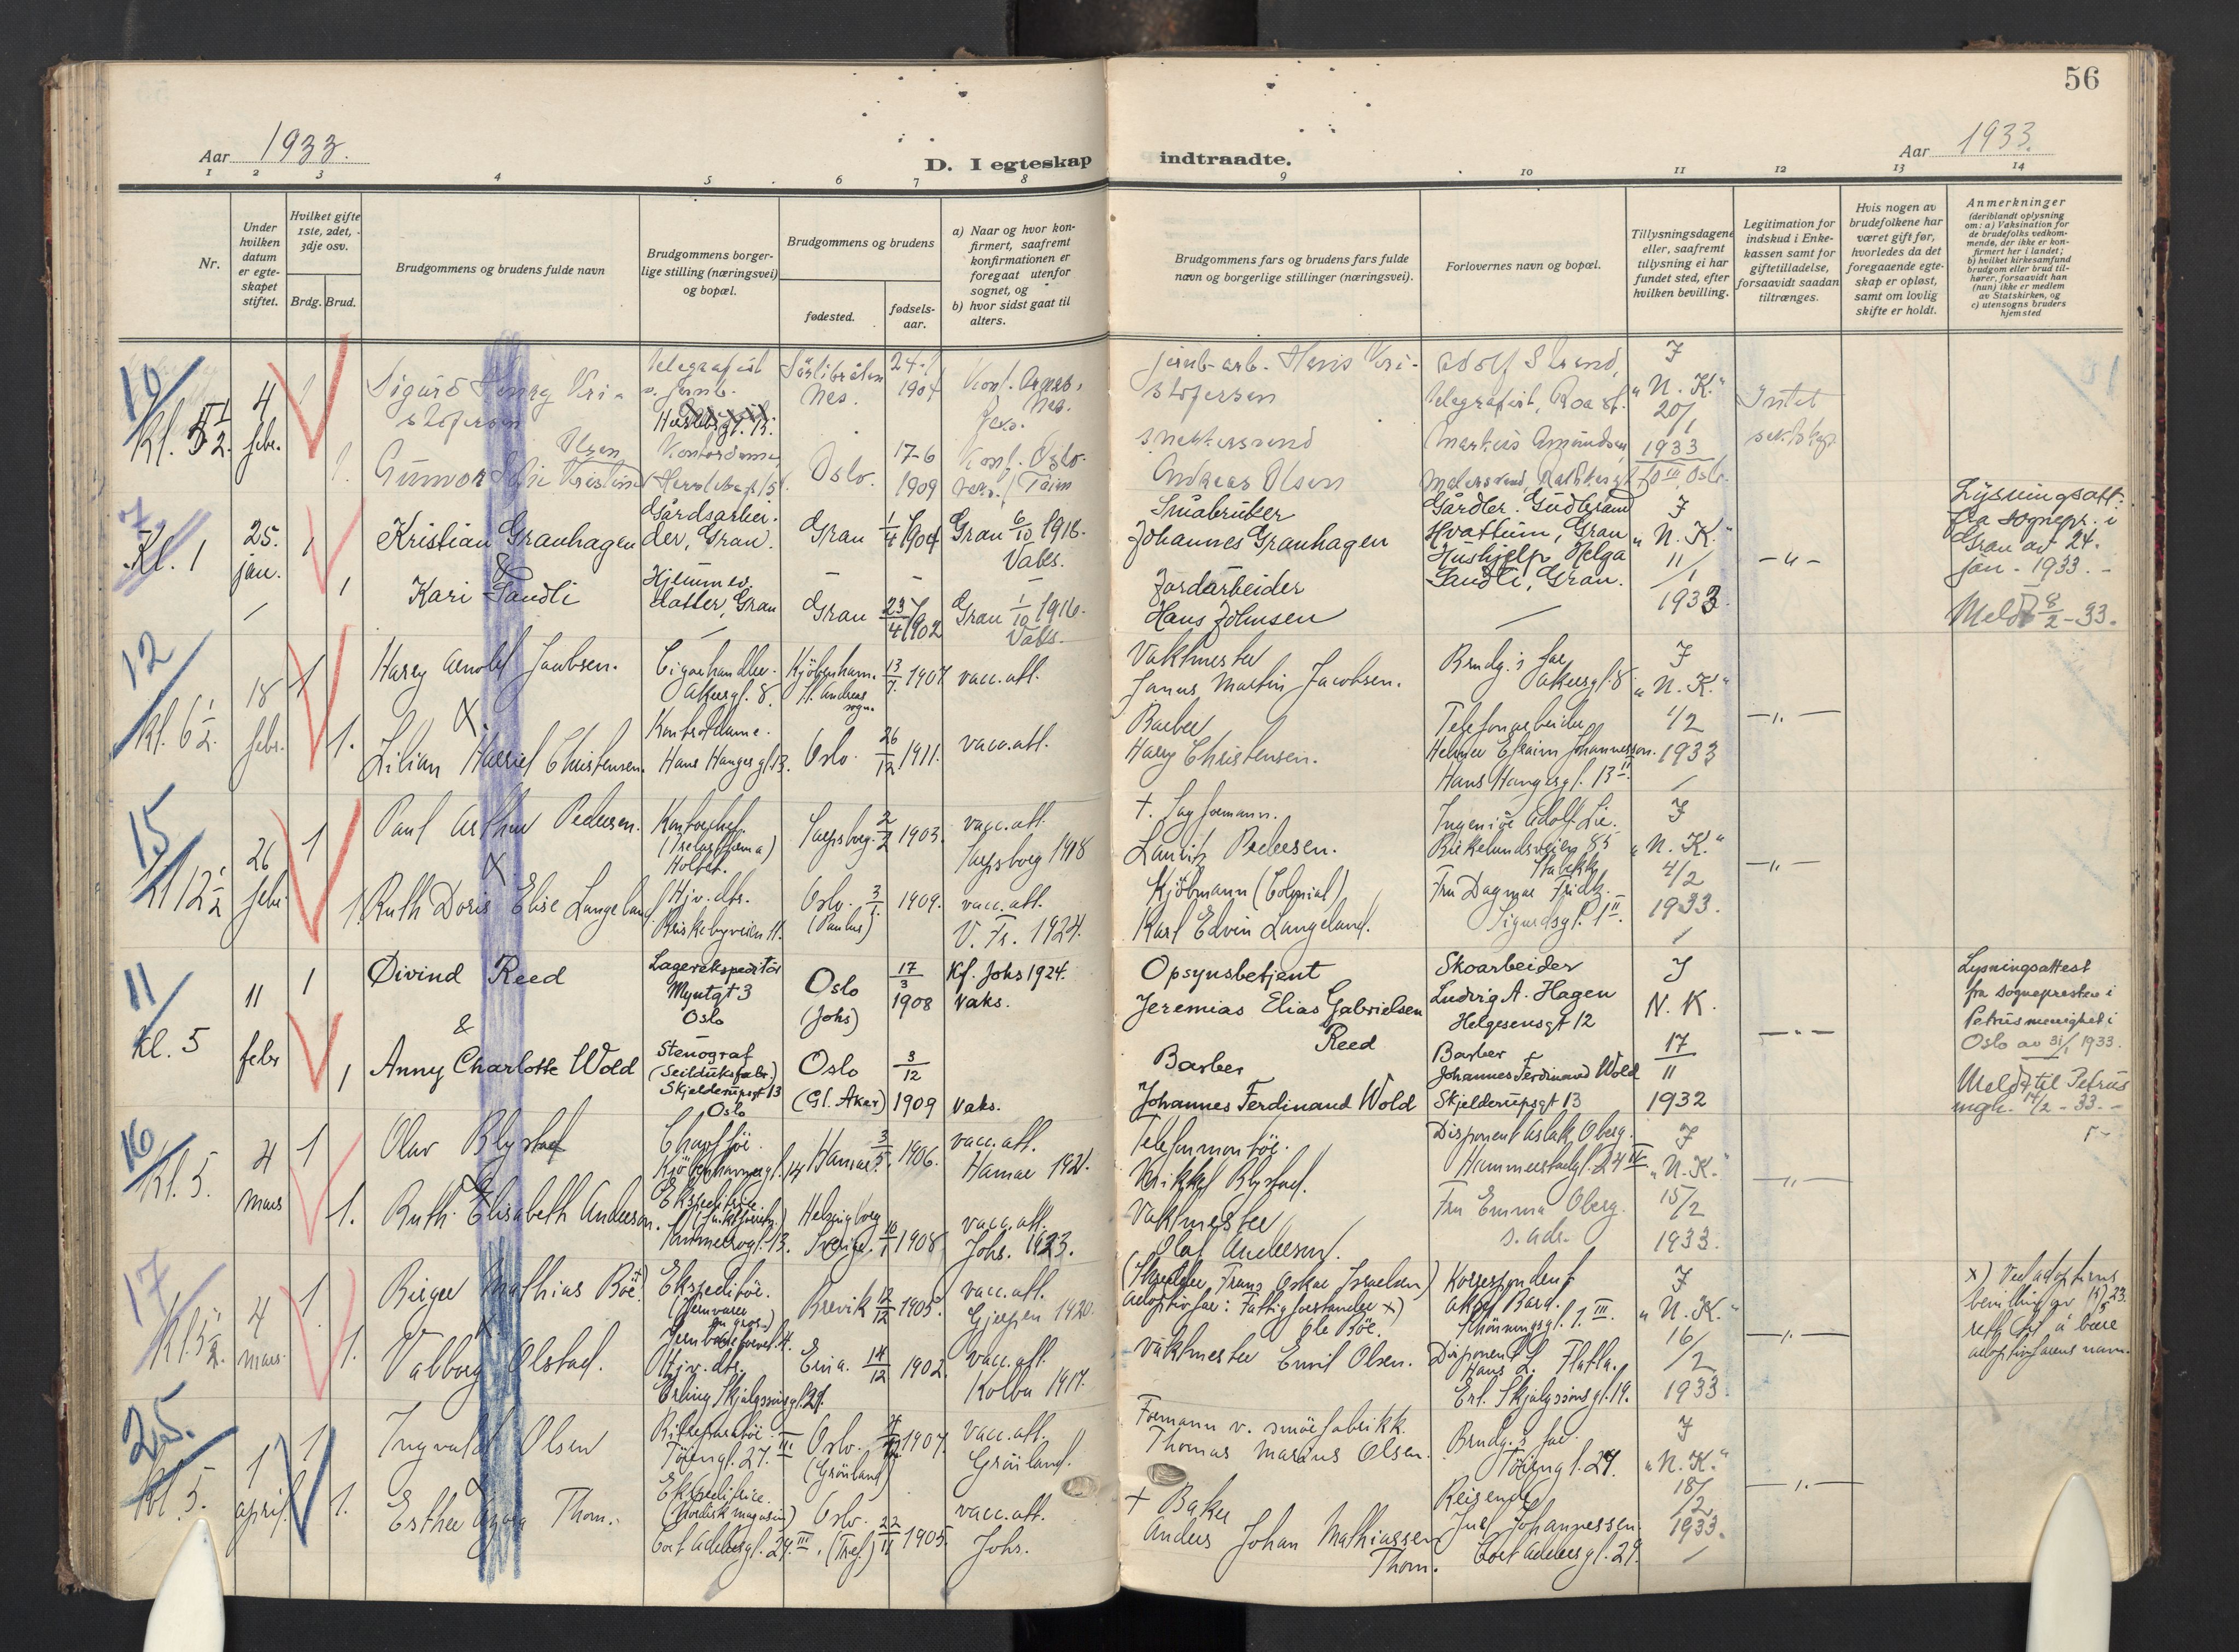 56
Aar 1933.
D. I egteskap indtraadte.
Aar 1933.
1 2 3 4 5 6 7 8 9 10 11 12 13 14
Nr.
Under hvilken datum er egteskapet stiftet.
Hvilket gifte 1ste, 2det, 3dje osv.
Brdg. Brud.
Brudgommens og brudens fulde navn
Brudgommens borgerlige stilling (næringsvei) og bopæl.
Brudgommens og brudens
fødested.
fødselsaar.
a) Naar og hvor konfirmert, saafremt konfirmationen er foregaat utenfor sognet, og
b) hvor sidst gaat til alters.
Brudgommens fars og brudens fars fulde navn og borgerlige stillinger (næringsvei).
Forlovernes navn og bopæl.
Tillysningsdagene eller, saafremt tillysning ei har fundet sted, efter hvilken bevilling.
Legitimation for indskud i Enkekassen samt for giftetilladelse, forsaavidt saadan tiltrænges.
Hvis nogen av brudefolkene har været gift før, hvorledes da det foregaaende egteskap er opløst, samt om lovlig skifte er holdt.
Anmerkninger
(deriblandt oplysning om: a) Vaksination for de brudefolks vedkommende, der ikke er konfirmert her i landet;
b) hvilket kirkesamfund brudgom eller brud tilhører, forsaavidt han (hun) ikke er medlem av Statskirken, og
c) utensogns bruders hjemsted
10
4 febr.
1
Sigurd Henry Kristofersen
Telegrafist
Nes.
24-1 1904
Konf.
jernb-arb. Hans Kristofersen
Adolf Strand,
telegrafist, Roa st.
J
"N. K."
20/1
1933
Intet
1.
Olsen
Kontordame
Oslo.
17-6 1909
Konf. Oslo.
snekkersvend
Andreas Olsen
Markus Amundsen
7.
Kl. 1
25. jan.
1
Kristian Granhagen
&
Gårdsarbeider, Gran.
Gran
1/4 1904
Gran 6/10 1916.
Vaks.
Småbruker
Johannes Granhagen
Gårdbr. Gudbrand
Hvattum, Gran
J
"N. K."
11/1
1933.
-"-
Lysningsatt.
fra sognepr. i
Gran av 24.
jan. 1933. -
Meldt 8/2-33.
1
Kari Sandli
Hjemmev.
datter, Gran
Gran
23/4 1902
Gran 1/10 1916.
Vaks.
Jordarbeider
Hans Johnsen
Hushjelp Helga
Sandli, Gran.
12
Kl. 6 1/2.
18 febr.
1
Harry Arnold Jacobsen.
&
Cigarhandler.
Akersgt. 8.
Kjøbenhavn.
St. Andreas sogn.
13/7 1907
vacc. att.
Vaktmester
Janus Martin Jacobsen.
Brudg.s far
Akersgt. 8
J
"N. K."
4/2
1933
-"-
1.
Lilian Harriet Christensen.
Kontordame.
Hans Haugesgt. 13.
Oslo.
26/12 1911.
vacc. att.
Barber
Harry Christensen.
Telefonarbeider
Helmer Efraim Johannesson.
Hans Haugesgt. 13 II.
15
Kl 12 1/2
26 febr
1
Paul Arthur Pedersen.
&
Kontorchef.
Holtet.
Sarpsborg.
2/2 1903.
vacc. att.
Sarpsborg 1918
+. Lagformann.
Lauritz Pedersen.
Ingeniør Adolf Lie.
Birkelundsveien 85
Stabekk
J
"N. K."
4/2
1933.
-"-
1.
Ruth Doris Elise Langeland.
Hjv. dtr.
Briskebyveien 11.
Oslo.
(Paulus)
3/7. 1909.
vacc. att.
V. Fr. 1924.
Kjøbmann (Colonial)
Karl Edvin Langeland.
Fru Dagmar Fridtz.
Sigurdsgt. 1 II.
11
Kl. 5
11 febr
1
Øivind Reed
&
Lagerekspeditør
Myntgt 3
Oslo
Oslo
(Johs)
17/3 1908
Kf. Johs 1924.
Vaks.
Opsynsbetjent
Jeremias Elias Gabrielsen
Reed
Skoarbeider
Ludvig A. Hagen
Helgesensgt 12
J
N. K.
17/11
1932
-"-
Lysningsattest
fra sognepresten i
Petrus menighet i
Oslo av 31/1 1933.
Meldt til Petrus
mgh. 14/2 - 33. -
1
Anny Charlotte Wold
Stenograf
(Seilduksfabr.)
Skjelderupsgt 13
Oslo
Oslo
(Gl. Aker)
3/12 1909
Vaks.
Barber
Johannes Ferdinand Wold
Barber
Johannes Ferdinand Wold
Skjelderupsgt 13
16
Kl. 5.
4 mars
1
Olav Blystad
&
Chauffør.
Kjøbenhavnergt. 14
Hamar.
3/5. 1906.
vacc. att.
Hamar 1921.
Telefonmontør.
Mikkel Blystad.
Disponent Aslak Oberg.
Hammerstadgt. 24 IV
J
"N. K."
15/2
1933.
-"-
1.
Ruth Elisabeth Andersen.
Ekspeditrice
Helsingborg
Sverige.
10/1 1908
vacc. att.
Johs. 1923.
Vaktmester
Olaf Andersen.
Fru Emma Oberg.
s. adr.
17
Kl 5 1/2.
4 mars.
1.
Birger Mathias Bøe x)
&
Ekspeditør.
(Jernvarer
en gros.)
Brevik
12/12 1905.
vacc. att.
Gjerpen 1920.
(Skredder Frans Oskar Israelsen)
Adoptivfar: Fattigforstander x)
Ole Bøe.
Korrespondent
Aksel Bard.
Schøningsgt. 1. III.
J
"N. K."
16/2
1933.
-"-
x) Ved adoptivns
bevilling av 15/5 23.
rett til å bære
adoptivfarens navn.
1.
Valborg Olstad.
Hjv. dtr.
Erling Skjalgssønsgt. 29.
Eina.
14/12 1902.
vacc. att.
Kolbu 1917.
Vaktmester Emil Olsen.
Disponent
Hans L. Flatla.
Erl. Skjalgssønsgt. 19.
25.
Kl 5.
1 april.
1
Ingvald Olsen
&
Tøiengt. 27. III
Oslo.
(Grønland)
1907.
vacc. att.
Grønland.
Formann v. smørfabrikk.
Thomas Marius Olsen.
Brudg.s far.
Tøiengt. 27.
J
"N. K."
18/2
1933.
-"-
1.
Esther Thom.
Ekspeditrice.
(Nordisk magasin)
Cort Adelersgt. 29. III.
Oslo.
(Tref.)
22/11 1905.
vacc. att.
Johs.
+ Baker
Anders Johan Mathiassen
Thom.
Reisende
Juel Johannessen.
Cort Adelersgt. 29.